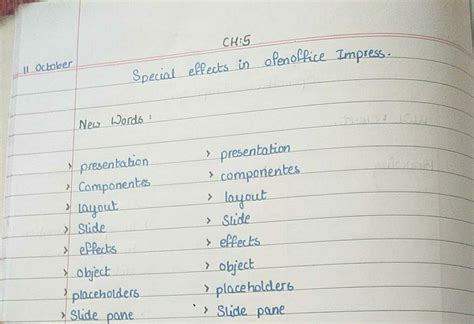 CH:5
11 October
Special effects in openoffice Impress.
New Words :
> presentation > presentation
> Componentes > componentes
> layout > layout
> Slide > Slide
> effects > effects
> object > object
> placeholders > placeholders
> Slide pane > Slide pane